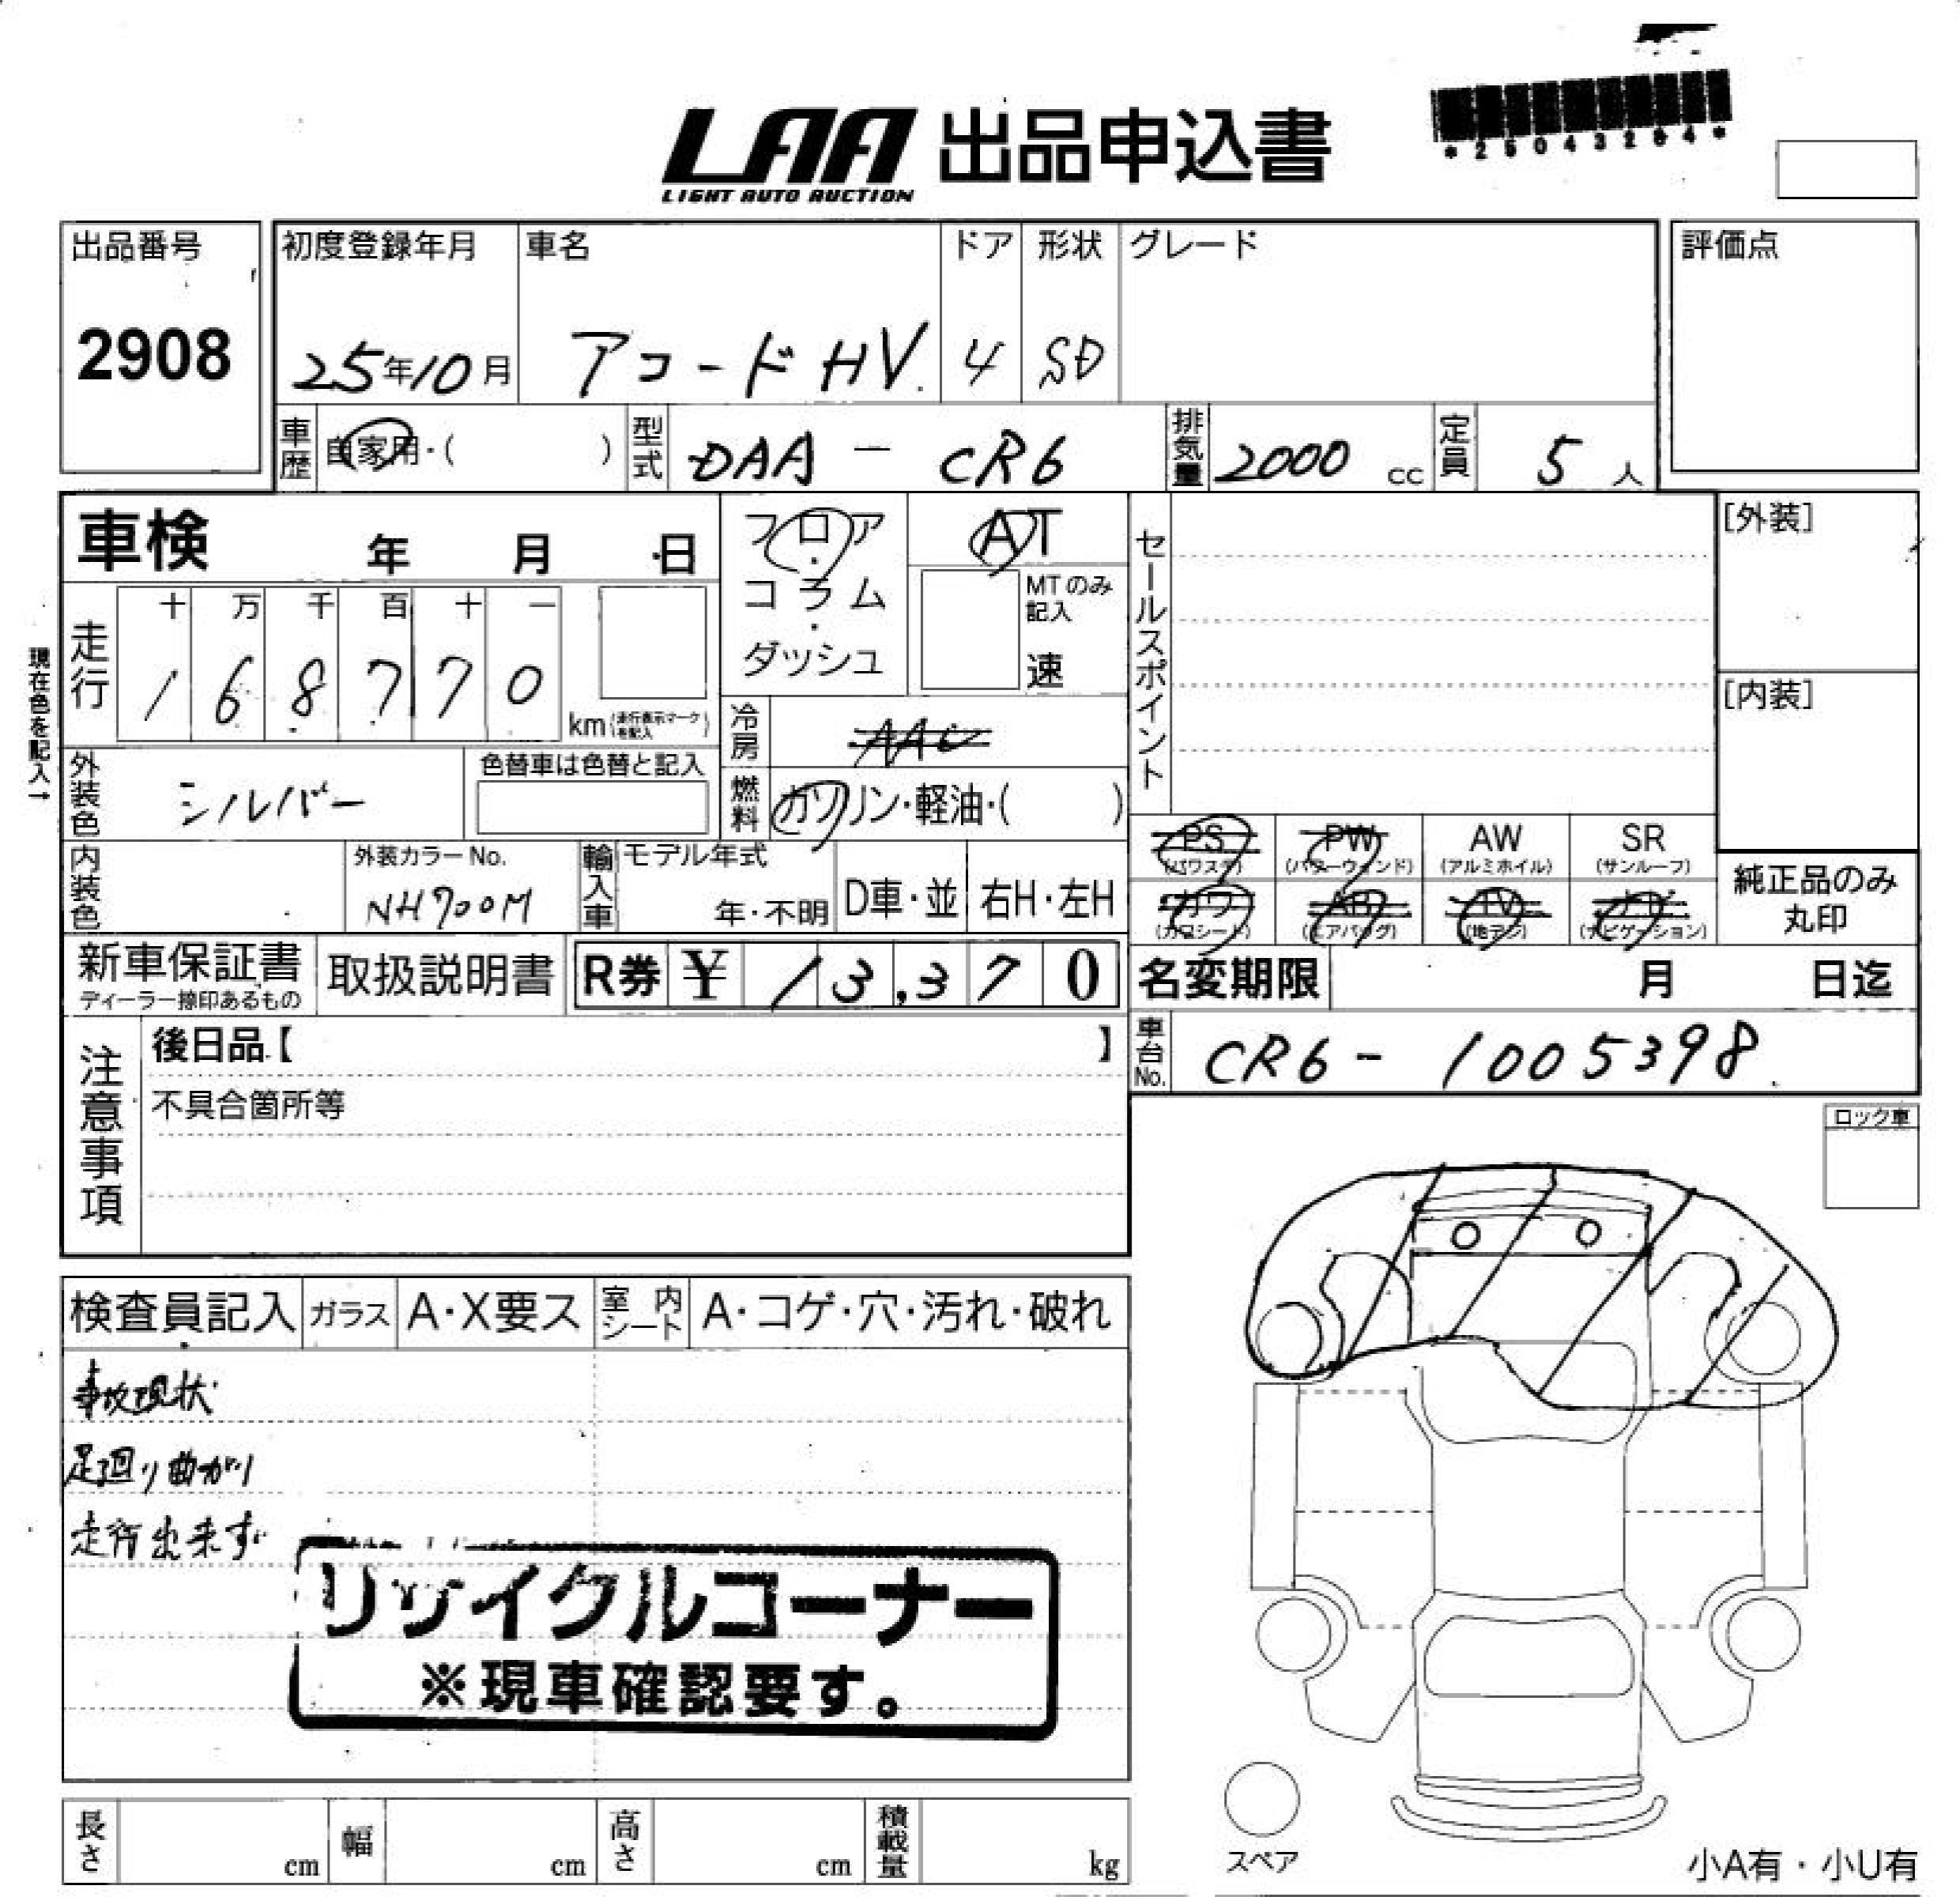 LAA 出品申込書
LIGHT AUTO AUCTION
*25043284*
出品番号
2908
初度登録年月 車名 ドア 形状 グレード 評価点
25年10月 アコードHV. 4 SD
車歴 自家用・( ) 型式 DAA - CR6 排気量 2000 cc 定員 5 人
車検 年 月 日
フロア・コラム・ダッシュ
AT
MTのみ記入
速
セールスポイント
[外装]
[内装]
現在色を記入→
走行 十 万 千 百 十 一
1 6 8 7 7 0
km(走行表示マークを記入)
冷房 AAC
外装色 シルバー 色替車は色替と記入
燃料 ガソリン・軽油・( )
内装色 外装カラーNo. NH700M
輸入車 モデル年式 年・不明 D車・並 右H・左H
PS (パワステ) PW (パワーウィンド) AW (アルミホイル) SR (サンルーフ)
カワ (カワシート) AB (エアバッグ) TV (地デジ) ナビ (ナビゲーション)
純正品のみ丸印
新車保証書 ディーラー捺印あるもの
取扱説明書
R券 ¥ 13,370
名変期限 月 日迄
車台No. CR6-1005398
注意事項
後日品【 】
不具合箇所等
ロック車
検査員記入 ガラス A・X要ス 室内シート A・コゲ・穴・汚れ・破れ
事故現状
足廻り曲がり
走行出来ず
リサイクルコーナー
※現車確認要す。
長さ cm 幅 cm 高さ cm 積載量 kg
スペア
小A有・小U有